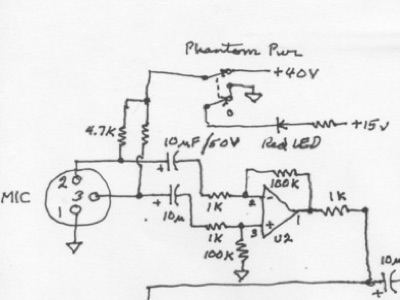 Phantom Pwr
+40V
4.7K
10µF/50V
+15V
Red LED
2
MIC
3
1
+
+
10µ
1K
1K
100K
2
3
-
+
1
U2
1K
100K
10µ
+